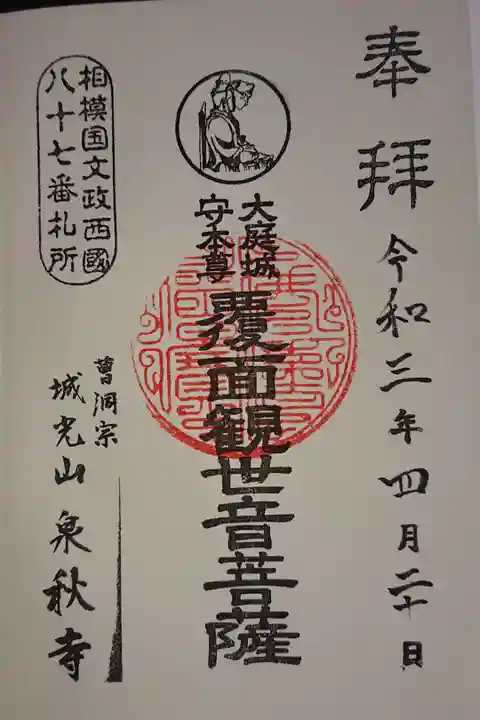 奉拝
令和三年四月二十日
大庭城
守本尊
覆面観世音菩薩
相模国文政西國
八十七番札所
曹洞宗
城光山
泉秋寺